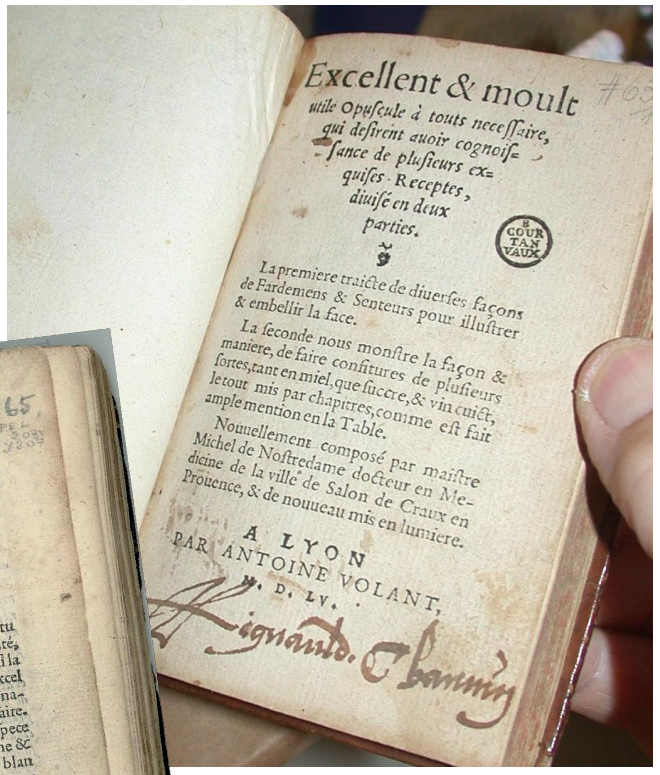 Excellent & moult
utile Opuſcule à touts neceſſaire,
qui deſirent auoir cognoiſ=
ſance de pluſieurs ex=
quiſes Receptes,
diuiſé en deux
parties.
La premiere traicte de diuerſes façons
de Fardemens & Senteurs pour illuſtrer
& embellir la face.
La ſeconde nous monſtre la façon &
maniere, de faire confitures de pluſieurs
ſortes, tant en miel, que ſuccre, & vin cuict,
le tout mis par chapitres, comme eſt fait
ample mention en la Table.
Nouuellement compoſé par maiſtre
Michel de Noſtredame docteur en Me-
dicine de la ville de Salon de Craux en
Prouence, & de nouueau mis en lumiere.
A LYON
PAR ANTOINE VOLANT,
M. D. LV.
B
COUR
TAN
VAUX
65
tu
ré,
ſi la
xcel
na-
aire.
pece
ne &
blan